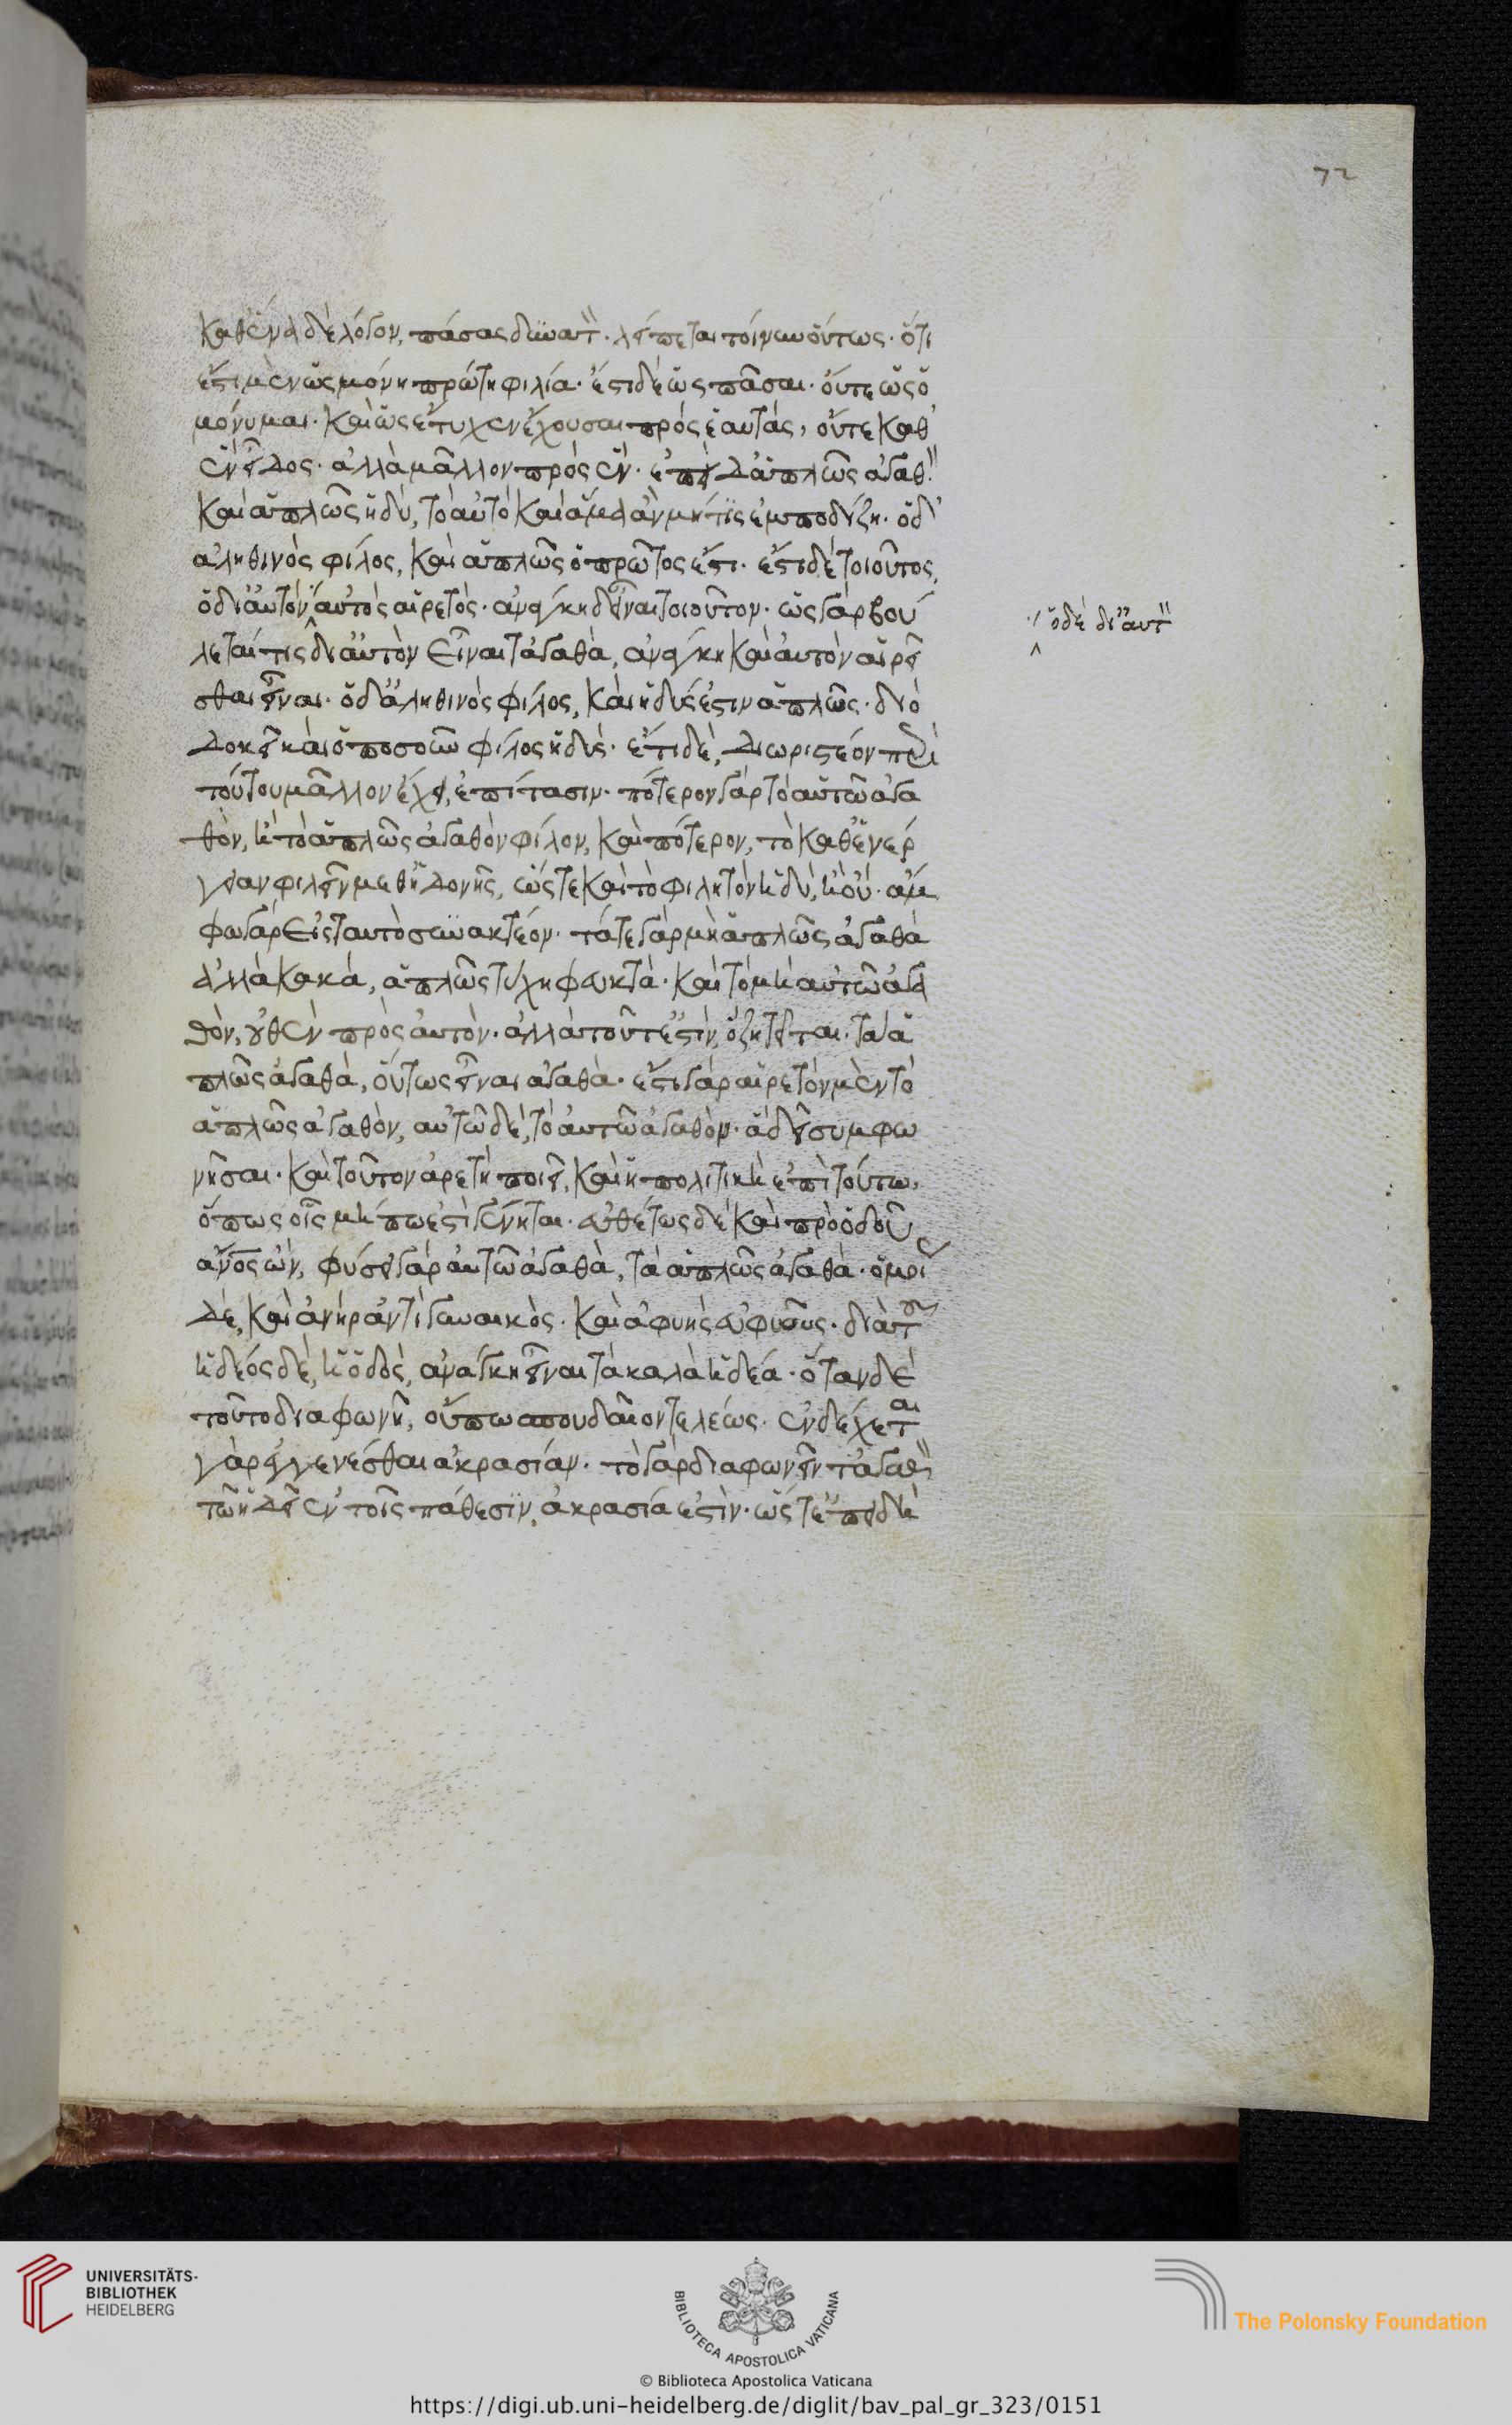 72
καθ' ἕνα δὲ λόγον, πάσας ἀδύνατ. λείπεται τοίνυν οὕτως. ὅτι
ἔστι μὲν ὡς μόνη πρώτη φιλία. ἔστι δὲ ὡς πᾶσαι. οὔτε ὡς ὁ
μόνυμαι. καὶ ὡς ἔτυχεν ἔχουσαι πρὸς ἑαυτάς, οὔτε καθ'
ἓν εἶδος. ἀλλὰ μᾶλλον πρὸς ἕν. ἐπεὶ δ' ἁπλῶς ἀγαθ
καὶ ἁπλῶς ἡδύ, τὸ αὐτὸ καὶ ἅμα ἂν μή τις ἐμποδίζη. ὁ δ'
ἀληθινὸς φίλος, καὶ ἁπλῶς ὁ πρῶτος ἐστι. ἔστι δὲ τοιοῦτος,
ὁ δι' αὑτὸν αὐτὸς αἱρετός. ἀνάγκη δ' εἶναι τοιοῦτον. ὡς γὰρ βού
λεταί τις δι' αὑτὸν εἶναι τἀγαθὰ, ἀνάγκη καὶ αὐτὸν αἱρεῖ
σθαι εἶναι. ὁ δ' ἀληθινὸς φίλος, καὶ ἡδύς ἐστιν ἁπλῶς. διὸ
δοκεῖ καὶ ὁποσοῦν φίλος ἡδύς. ἔτι δὲ, διωριστέον περὶ
τούτου μᾶλλον ἔχει, ἐπίτασιν. πότερον γὰρ τὸ αὑτῶ ἀγα
θὸν, ἢ τὸ ἁπλῶς ἀγαθὸν φίλον, καὶ πότερον, τὸ καθ' ἐνέρ
γειαν φιλεῖν μεθ' ἡδονῆς, ὥστε καὶ τὸ φιλητὸν ἡδὺ, ἢ οὔ. ἄμ
φω γὰρ εἰς ταυτὸ συνακτέον. τά τε γὰρ μὴ ἁπλῶς ἀγαθὰ
ἀλλὰ κακὰ, ἁπλῶς τύχη φευκτὰ. καὶ τὸ μὴ αὐτῶ ἀγα
θὸν, οὐθὲν πρὸς αὐτόν. ἀλλὰ τοῦτ' ἐστὶν, ὃ ζητεῖται. τὰ ἁ
πλῶς ἀγαθὰ, οὕτως εἶναι ἀγαθὰ. ἔστι γὰρ αἱρετὸν μὲν τὸ
ἁπλῶς ἀγαθὸν, αὐτῶ δὲ, τὸ αὑτῶ ἀγαθὸν. ἃ δεῖ συμφω
νῆσαι. καὶ τοῦτον ἀρετὴ ποιεῖ, καὶ ἡ πολιτικὴ ἐπὶ τούτω,
ὅπως οἷς μήπω ἐστὶ γένηται. εὐθέτως δὲ καὶ πρὸ ὁδοῦ,
ἄνος ὤν, φύσει γὰρ αὐτῶ ἀγαθὰ, τὰ ἁπλῶς ἀγαθὰ. ὁμοί
δὲ, καὶ ἀνὴρ ἀντὶ γυναικὸς. καὶ ἀφυὴς εὐφυοῦς. διὰ τοῦ
ἡδέος δὲ, ἡ ὁδός, ἀνάγκη εἶναι τὰ καλὰ ἡδέα. ὅταν δὲ
τοῦτο διαφωνῆ, οὔπω σπουδαῖον τελέως. ἐνδέχεται
γὰρ ἐγγενέσθαι ἀκρασίαν. τὸ γὰρ διαφωνεῖν τἀγαθ
τῶ ἡδεῖ ἐν τοῖς πάθεσιν, ἀκρασία ἐστὶν. ὥστ' ἐπειδὴ
ὁ δὲ δι' αὑτ
UNIVERSITÄTS-
BIBLIOTHEK
HEIDELBERG
BIBLIOTECA APOSTOLICA VATICANA
The Polonsky Foundation
© Biblioteca Apostolica Vaticana
https://digi.ub.uni-heidelberg.de/diglit/bav_pal_gr_323/0151